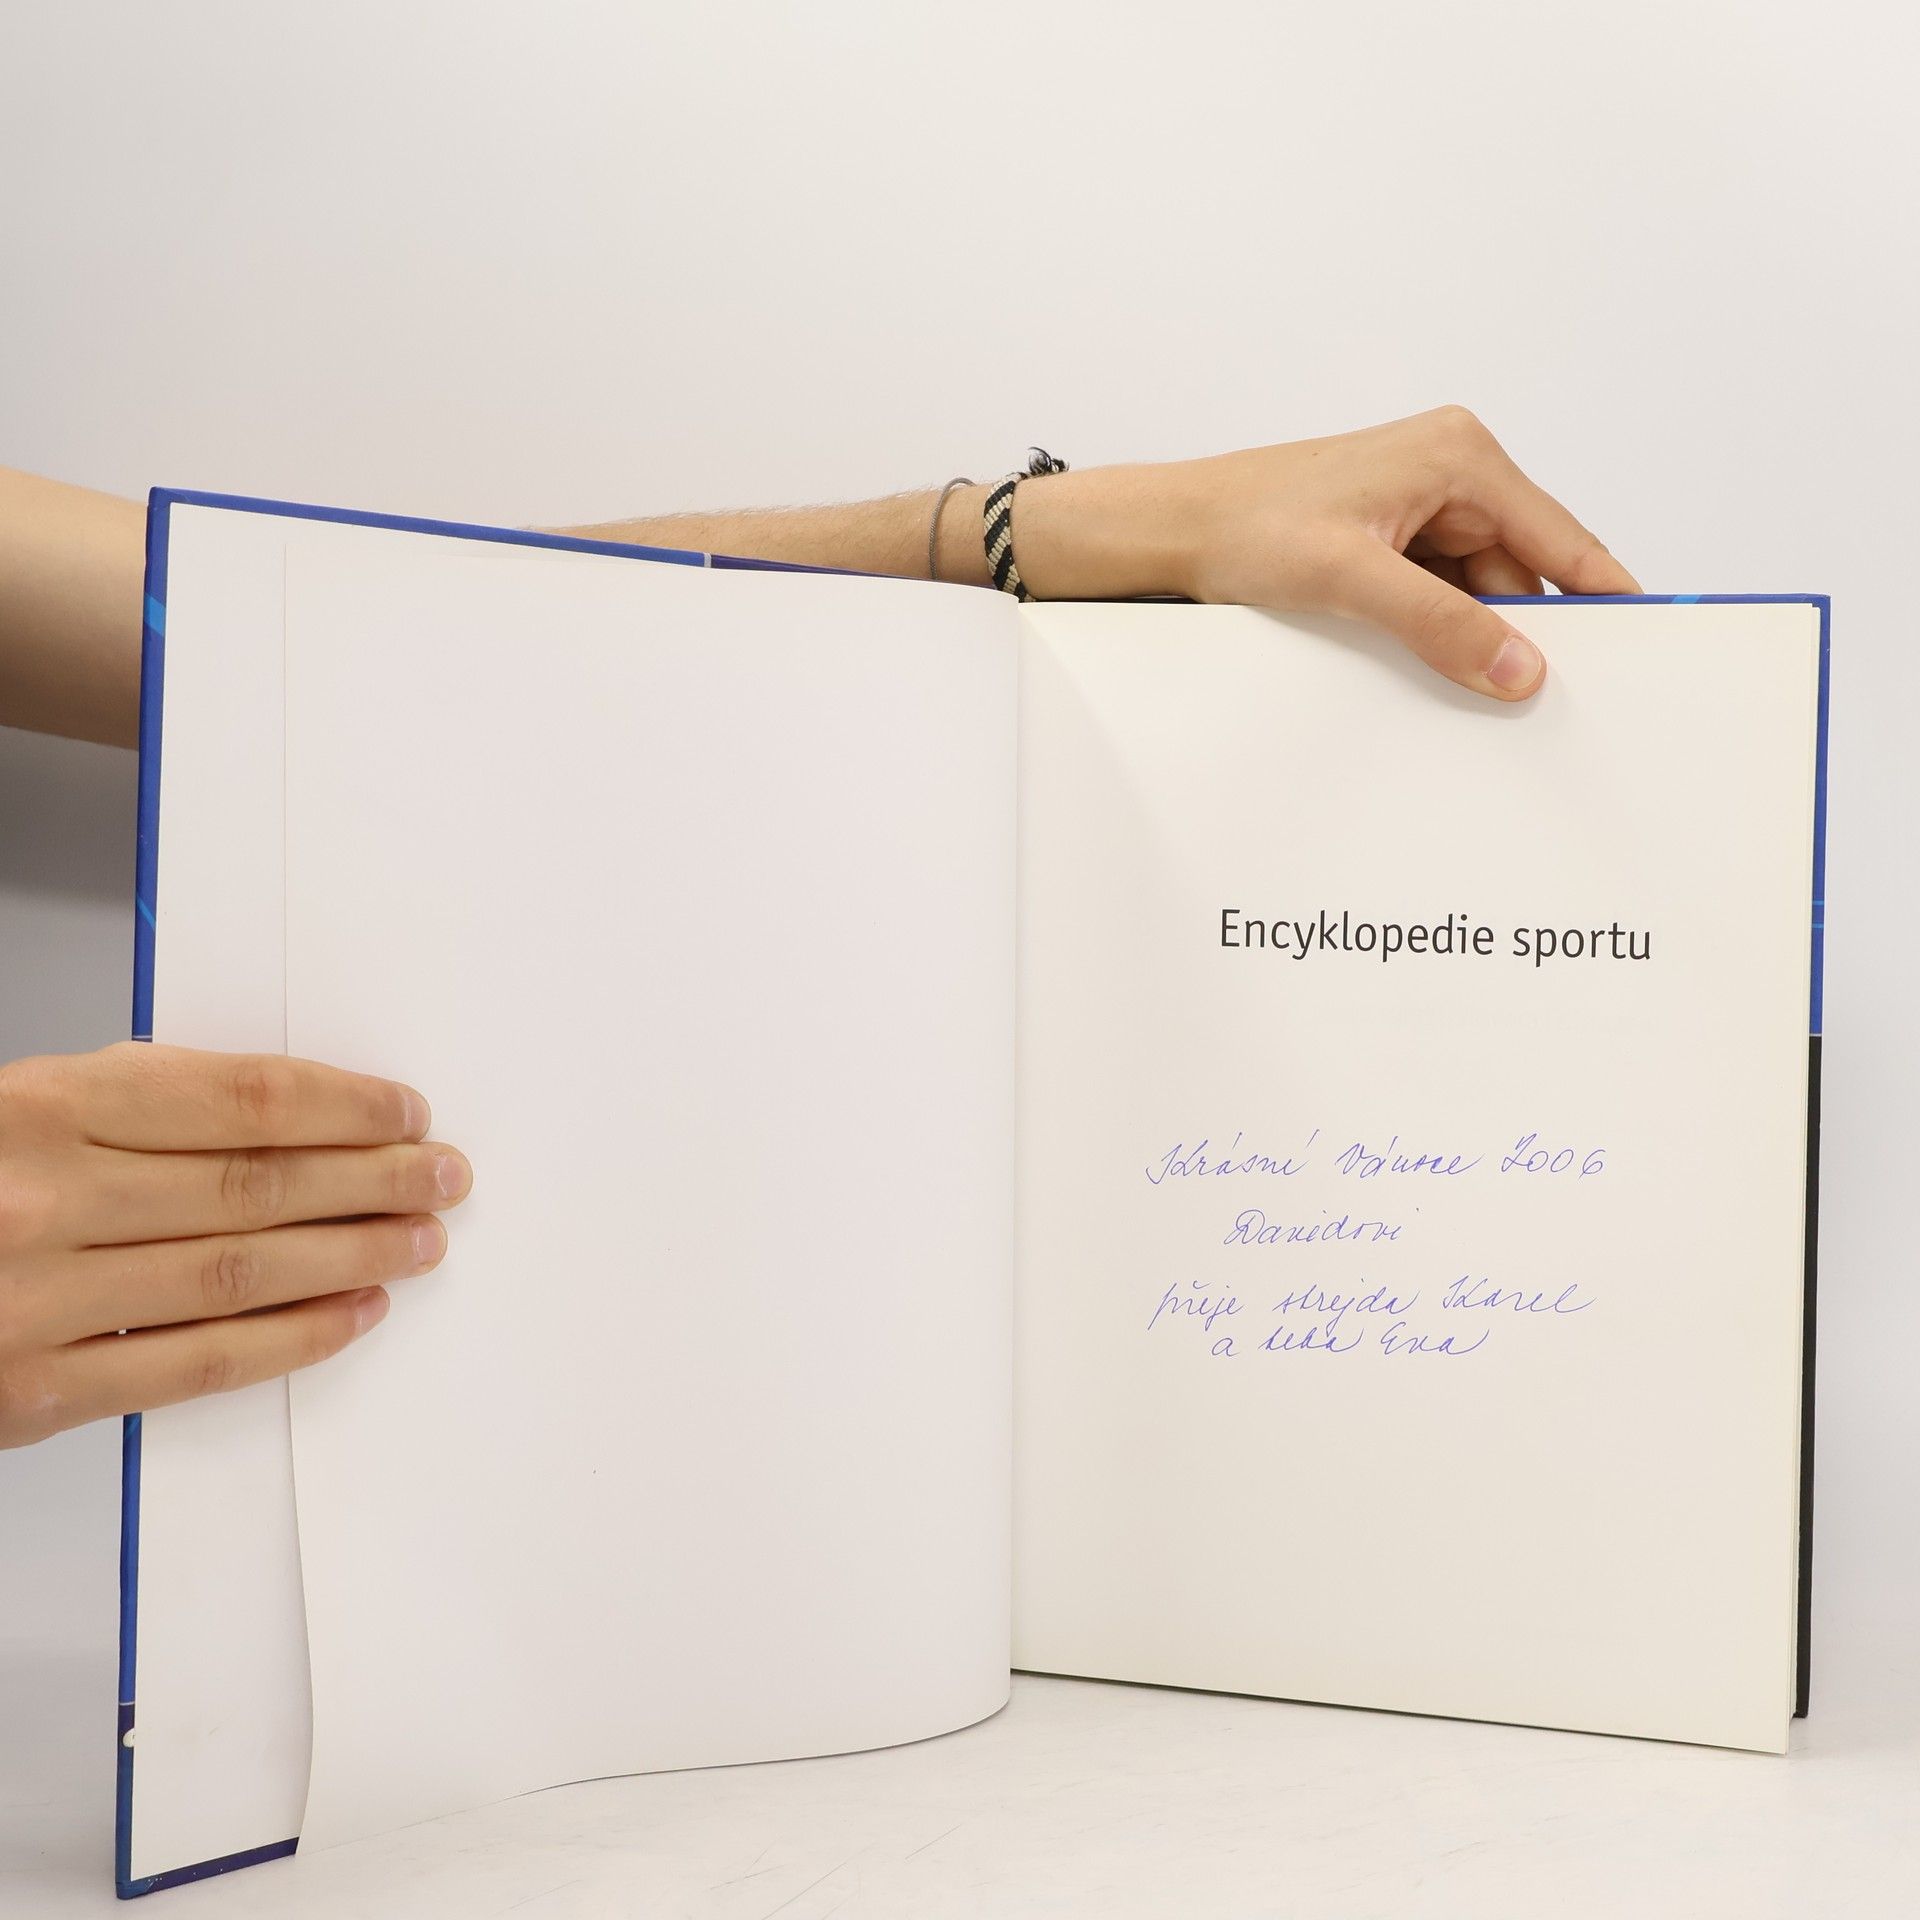 Encyklopedie sportu
Krásné Vánoce 2006
Davidovi
přeje strejda Karel
a teta Eva